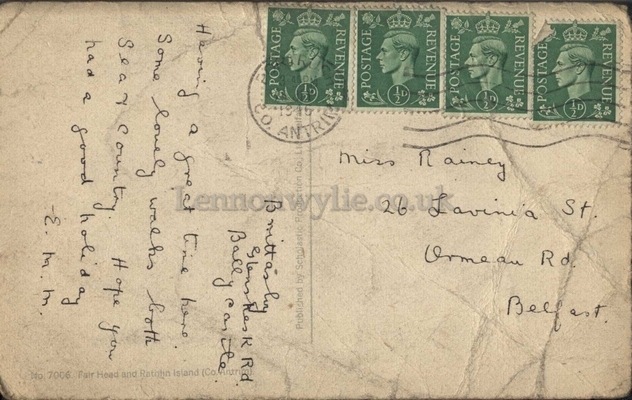 POSTAGE REVENUE ½D
POSTAGE REVENUE ½D
POSTAGE REVENUE ½D
POSTAGE REVENUE ½D
CO. ANTRIM
Having a great time here.
Some lovely walks both
Sea & Country. Hope you
had a good holiday
- E. M. M.
Glenshesk Rd
Ballycastle.
Miss Rainey
26 Lavinia St.
Ormeau Rd.
Belfast.
Lennonwylie.co.uk
Published by Scholastic Production Co.
No. 7006. Fair Head and Rathlin Island (Co. Antrim)